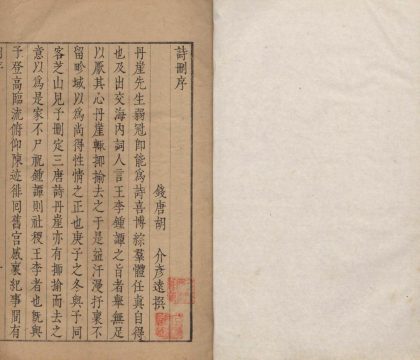 詩刪序
錢唐胡 介彥遠撰
丹崖先生弱冠即能為詩喜博綜羣體任真自得
也及出交海內詞人言王李鍾譚之旨者舉無足
以厭其心丹崖輒揶揄去之于是益汗漫抒裏不
留畛域以為尚得性情之正也庚子之冬與予同
客芝山見予刪定三唐詩丹崖亦有揶揄而去之
意以為是家不尸祝鍾譚則社稷王李者也旣與
予登高臨流俯仰陳迹徘徊舊宮感裏紀事間有